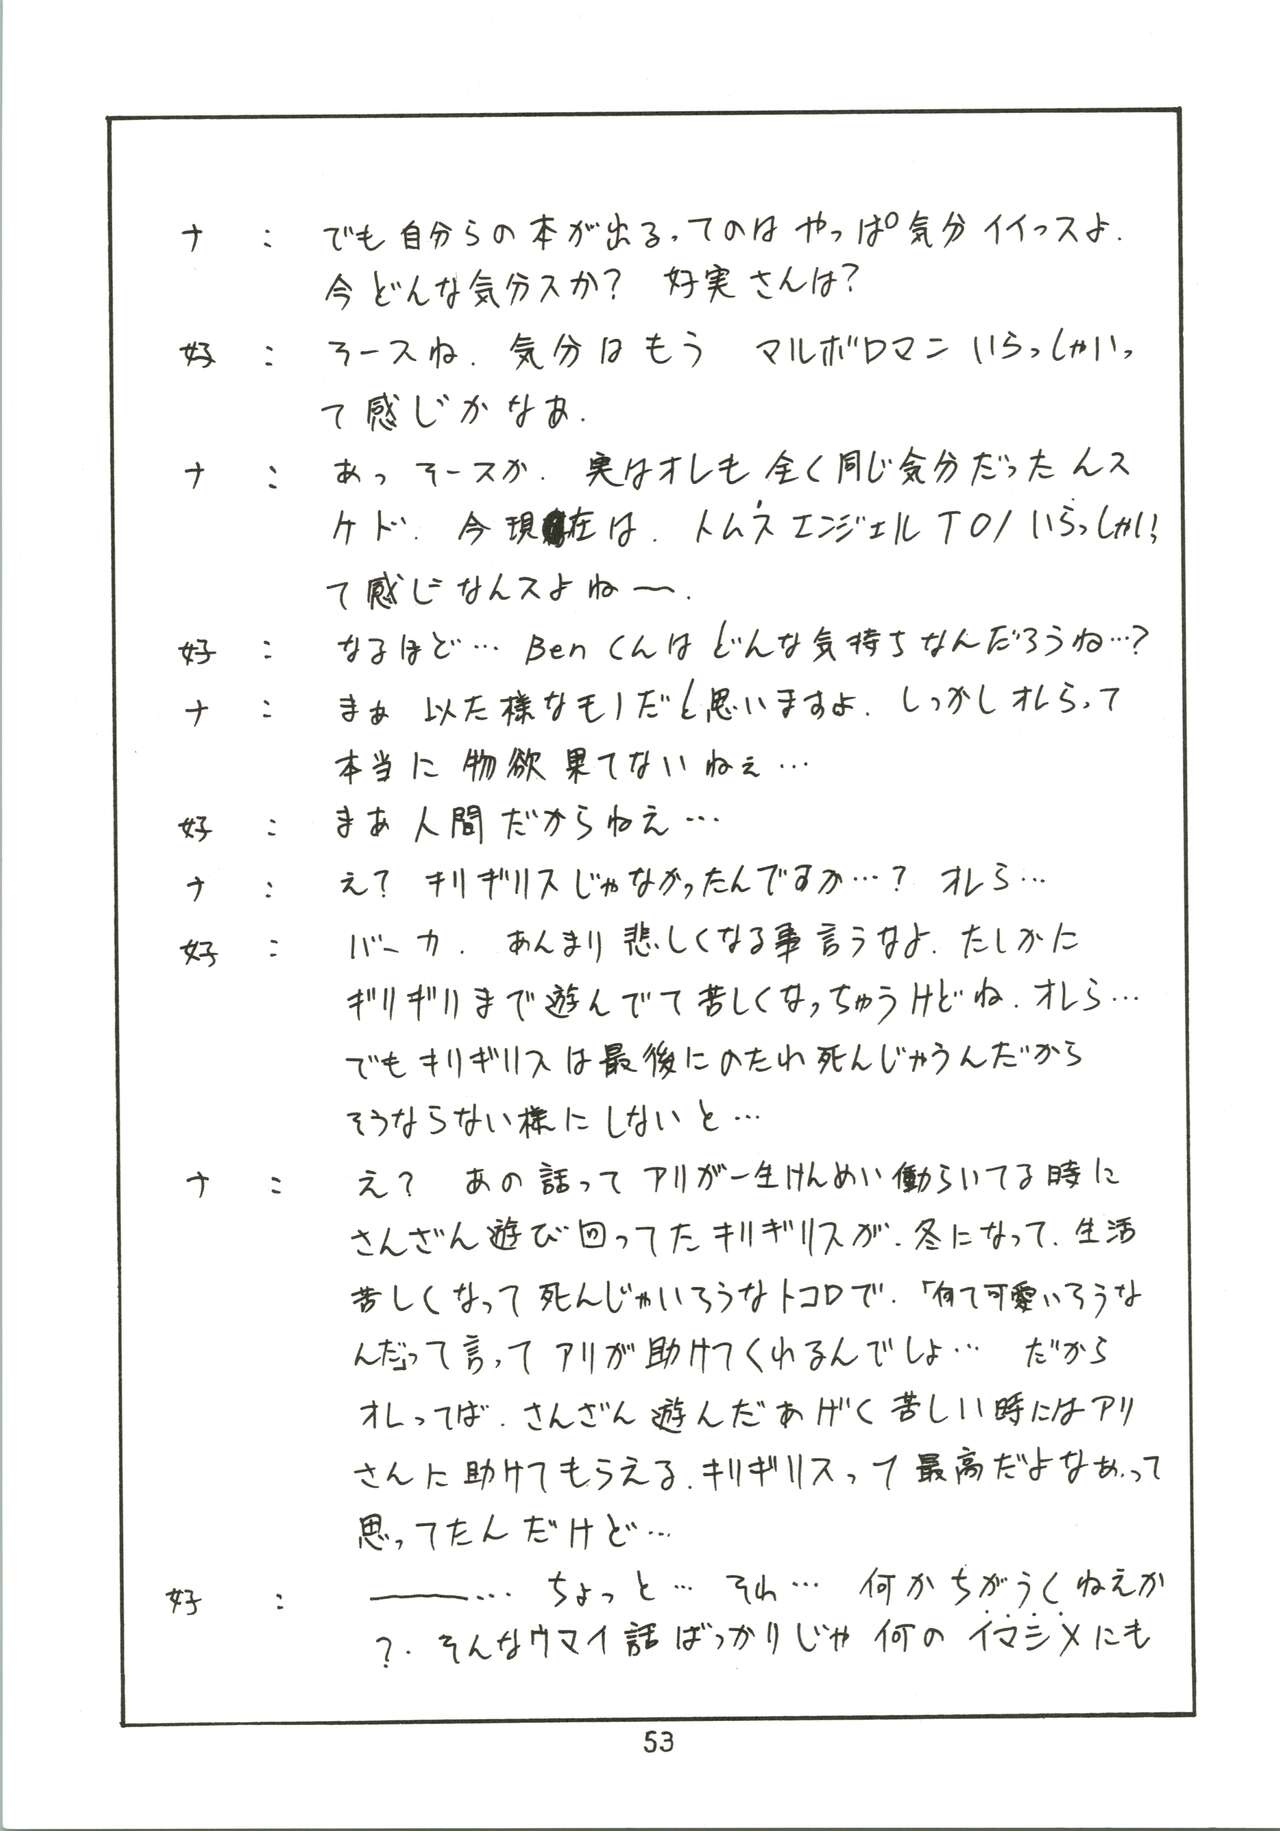 ナ : でも自分らの本が出るってのは やっぱ気分イイっスよ.
今どんな気分スか? 好実さんは?
好 : そースね. 気分はもう マルボロマン いらっしゃいっ
て感じかなあ.
ナ : あっ そースか. 実はオレも全く同じ気分だったんス
ケド. 今現在は. トムス エンジェル T01 いらっしゃいっ
て感じなんスよねー.
好 : なるほど… Benくんは どんな気持ちなんだろうね…?
ナ : まぁ 以た様なモノだと思いますよ. しっかしオレらって
本当に 物欲果てないねぇ…
好 : まあ人間だからねえ…
ナ : え? キリギリスじゃなかったんですか…? オレら…
好 : バーカ. あんまり悲しくなる事言うなよ. たしかに
ギリギリまで遊んでて苦しくなっちゃうけどね. オレら…
でもキリギリスは最後にのたれ死んじゃうんだから
そうならない様にしないと…
ナ : え? あの話ってアリが一生けんめい働らいてる時に
さんざん遊び回ってたキリギリスが. 冬になって. 生活
苦しくなって死んじゃいそうなトコロで. 「何て可愛いそうな
んだ」って言ってアリが助けてくれるんでしょ… だから
オレってば. さんざん遊んだあげく苦しい時にはアリ
さんに助けてもらえる. キリギリスって最高だよなぁ. って
思ってたんだけど…
好 : ――… ちょっと… それ… 何かちがうくねえか
?. そんなウマイ話ばっかりじゃ 何の イマシメにも
53